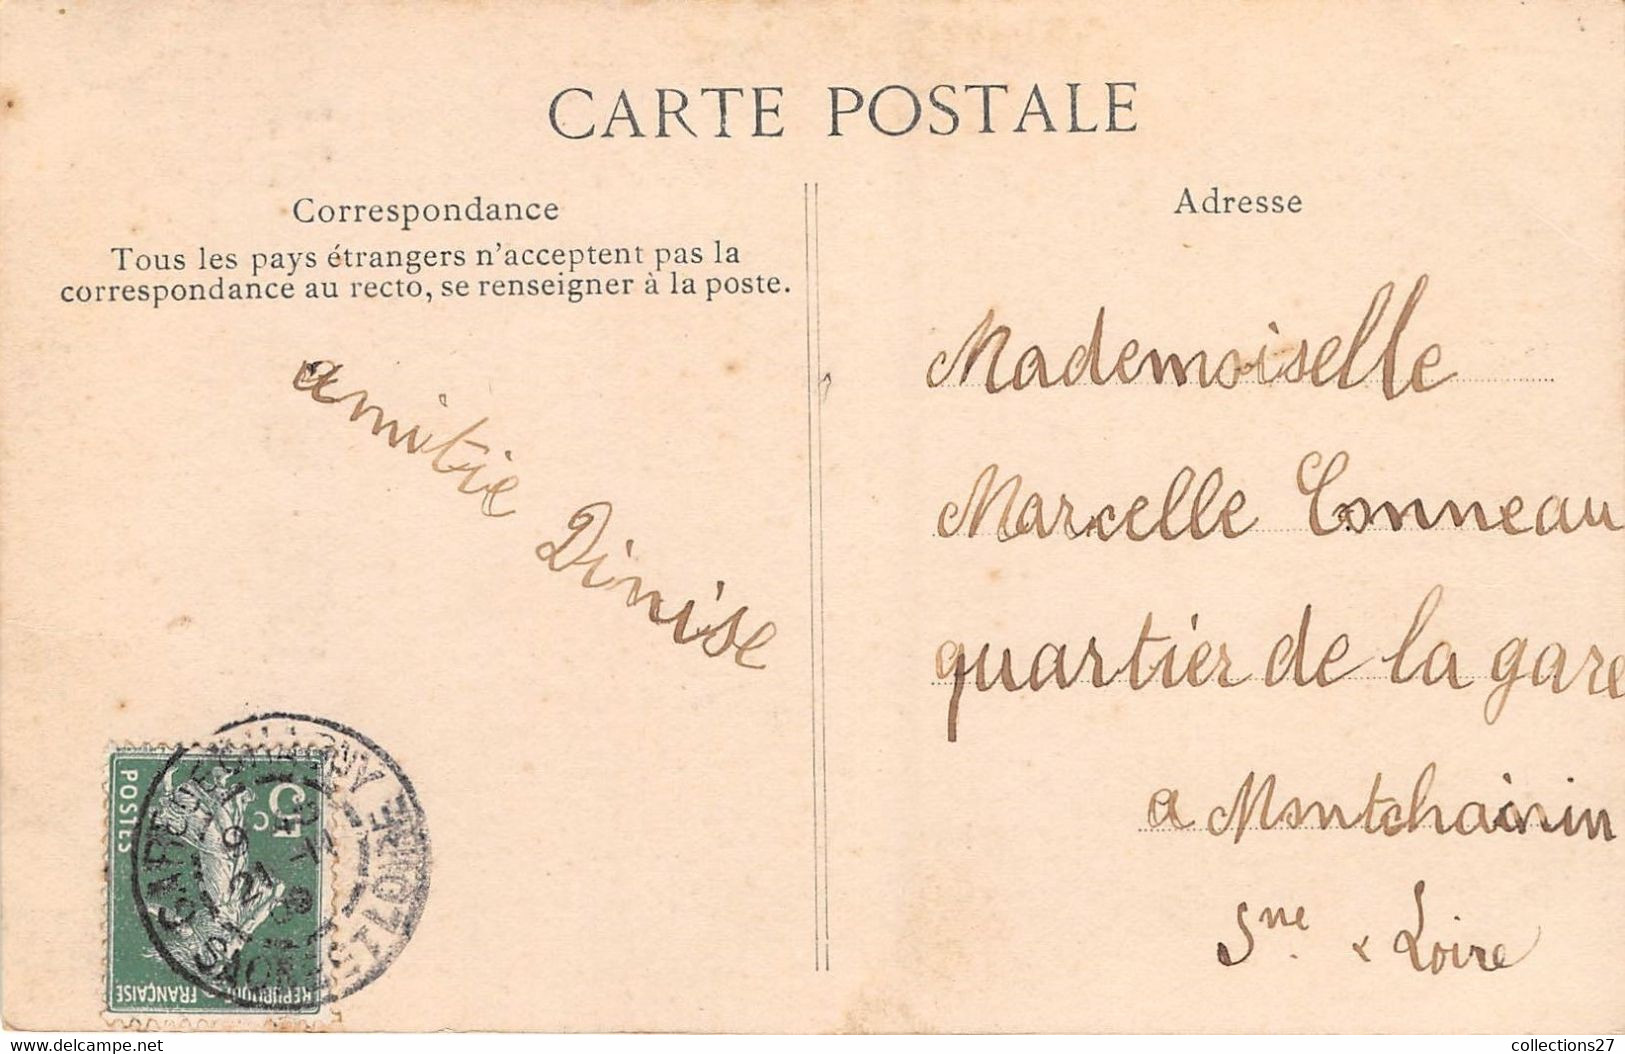 CARTE POSTALE
Correspondance
Tous les pays étrangers n'acceptent pas la
correspondance au recto, se renseigner à la poste.
amitie
Dinise
Adresse
Mademoiselle
Marcelle Conneau
quartier de la gare
a Montchainin
Sne & Loire
POSTES
5c
REPUBLIQUE FRANÇAISE
GARE DE CHAGNY
SAONE ET LOIRE
https://www.delcampe.net
collections27